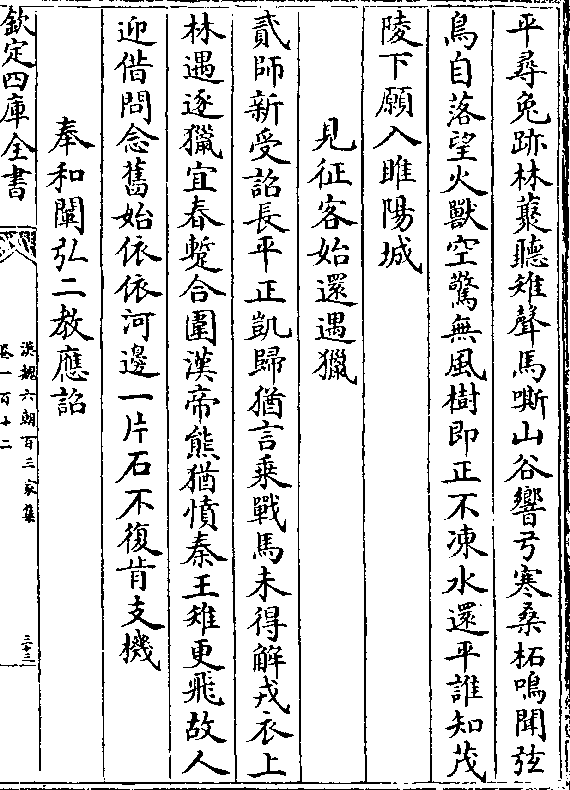 平尋兔跡林藂聽雉聲馬嘶山谷響弓寒桑柘鳴聞弦
鳥自落望火獸空驚無風樹即正不凍水還平誰知茂
陵下願入睢陽城
見征客始還遇獵
貳師新受詔長平正凱歸猶言乗戰馬未得解戎衣上
林遇逐獵宜春蹔合圍漢帝熊猶憤秦王雉更飛故人
迎借問念舊始依依河邊一片石不復肯支機
奉和闡弘二教應詔
欽定四庫全書
漢魏六朝百三家集
卷一百十二
三十三